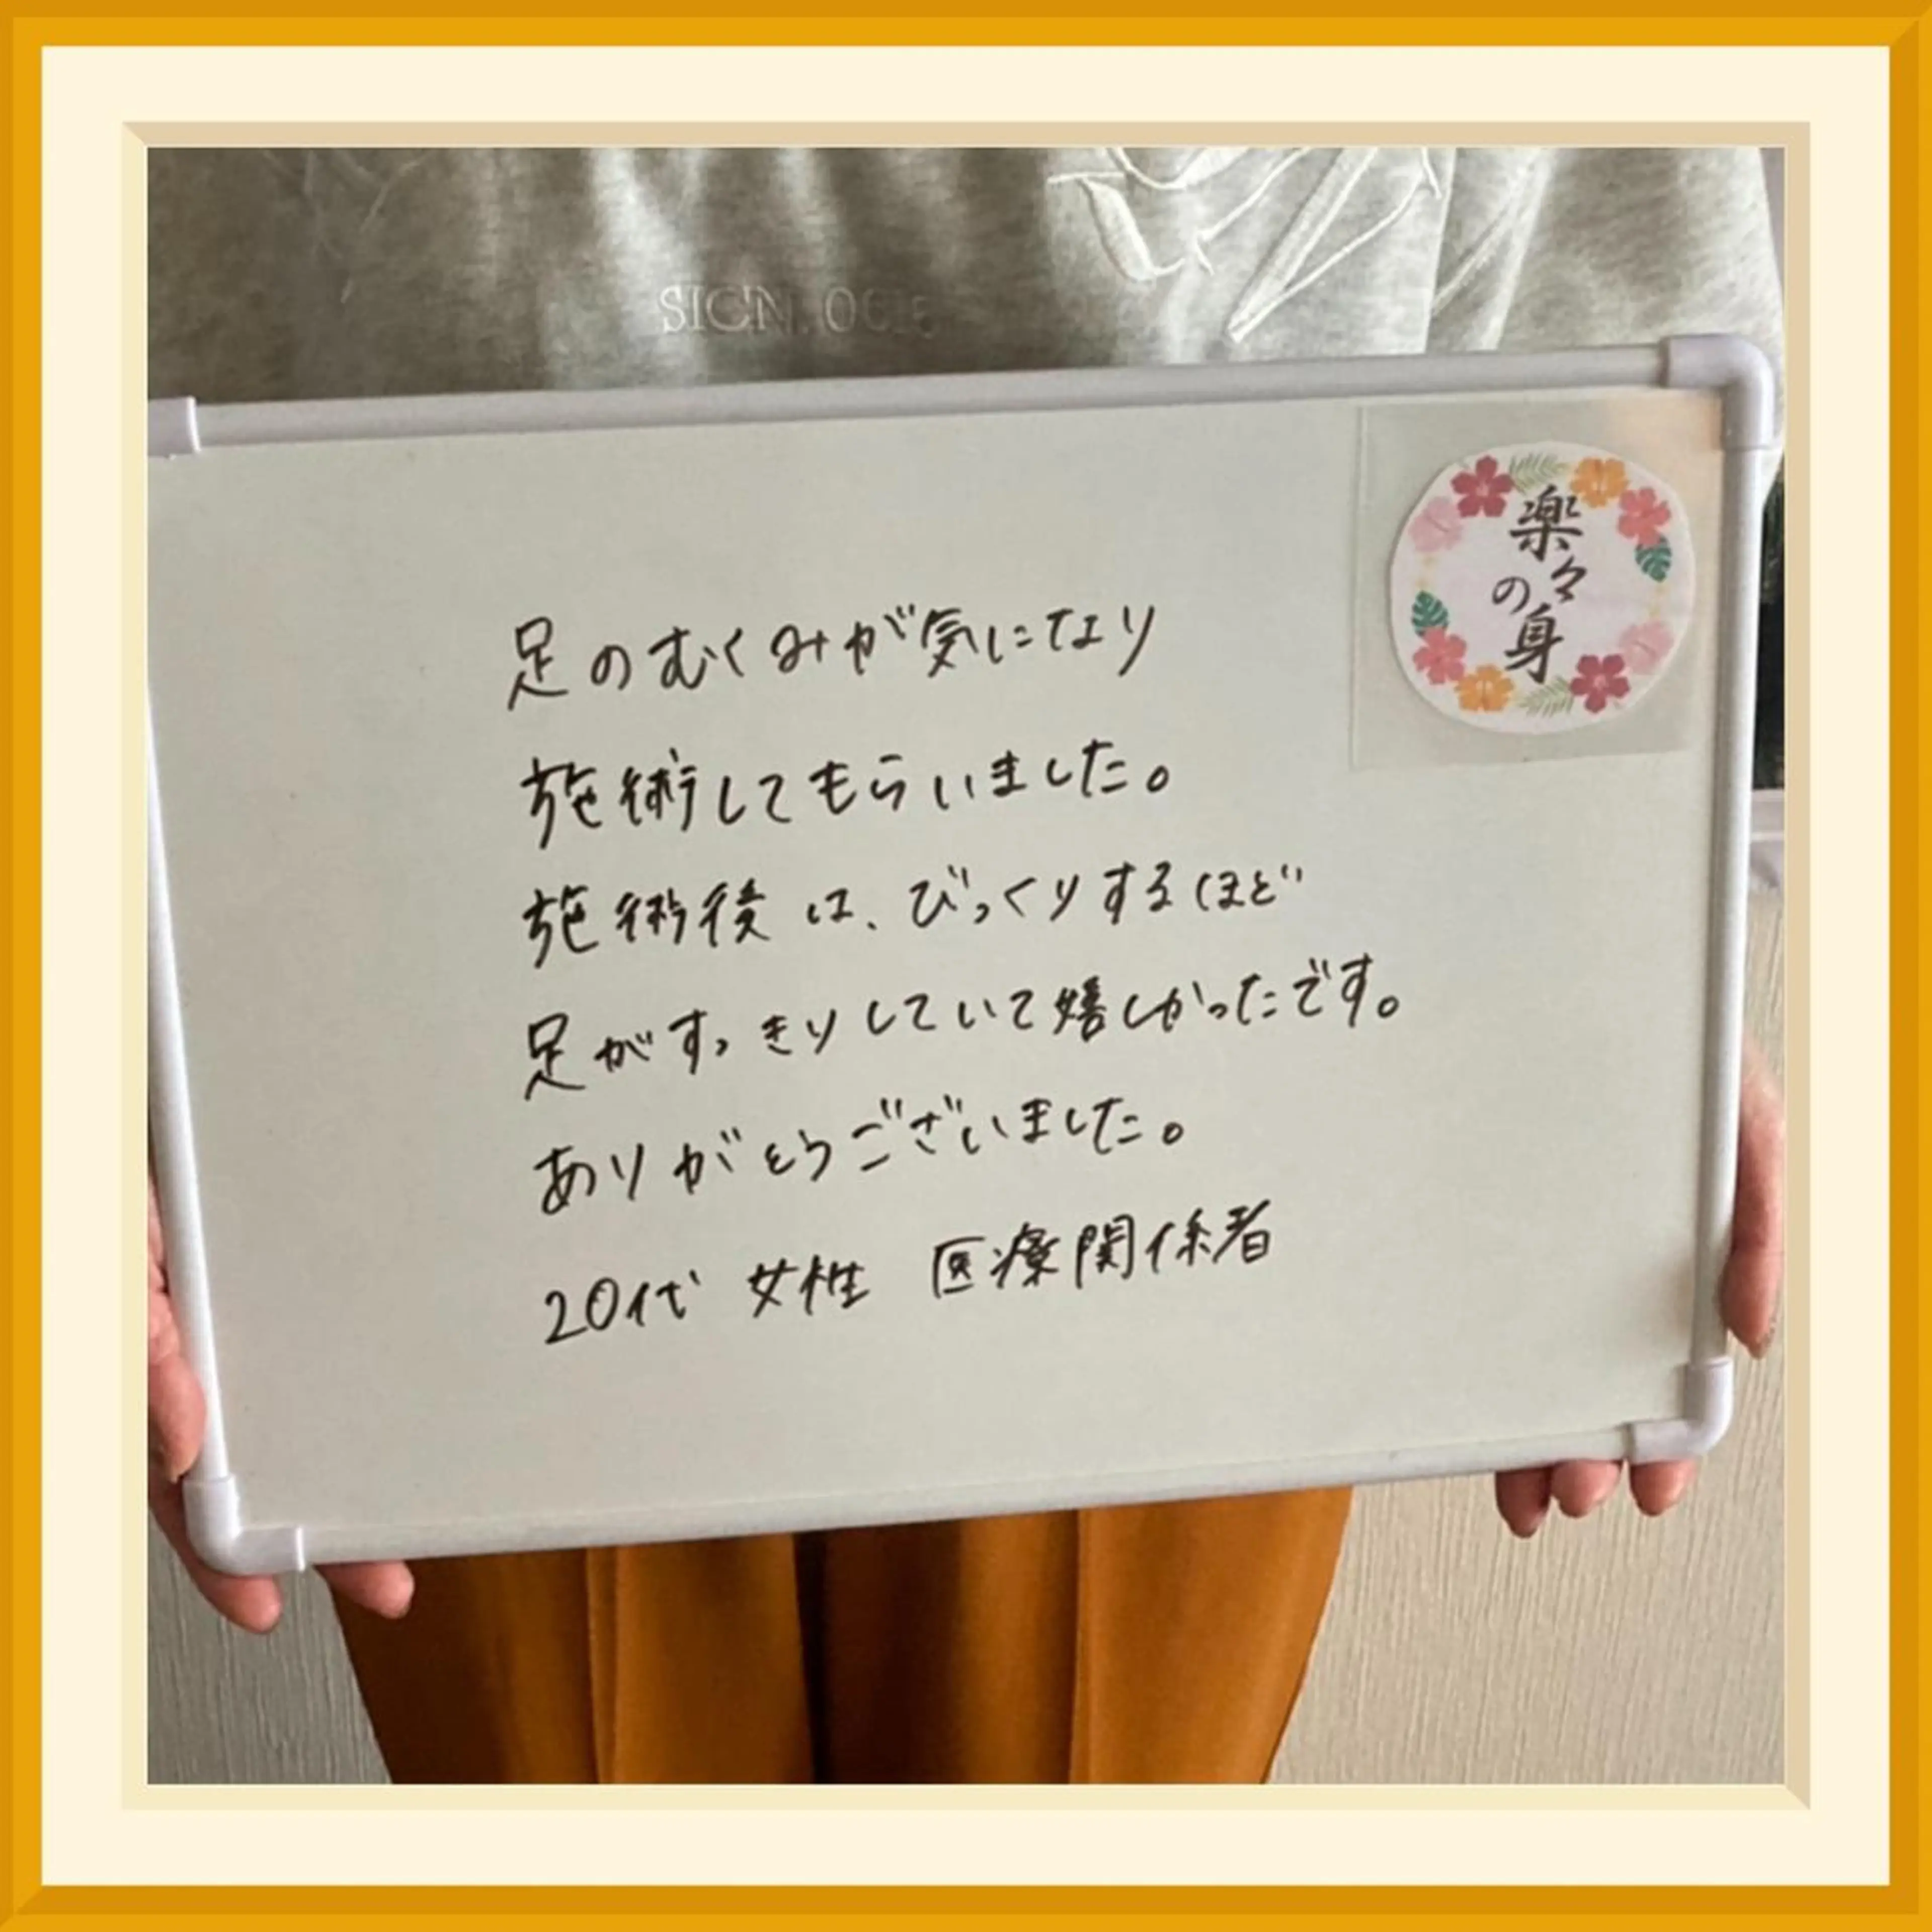 足のむくみが気になり
施術してもらいました。
施術後は、びっくりするほど
足がすっきりしていて嬉しかったです。
ありがとうございました。
20代 女性 医療関係者
楽々の身